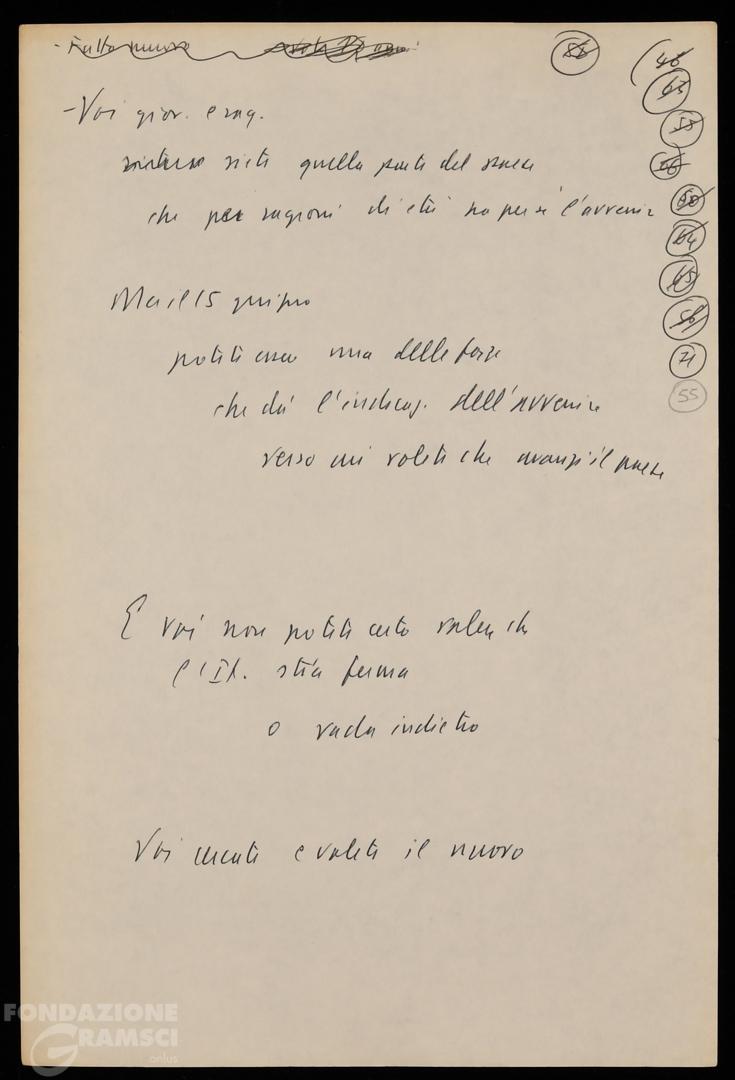 - Fatto nuovo
46
- Voi giov. e rag.
siete quella parte del paese
che per ragioni di età ha per sé l'avvenire
Ma il 15 giugno
potete essere una delle forze
che dà l'indicaz. dell'avvenire
verso cui volete che avanzi il paese
E voi non potete certo volere che
l'It. stia ferma
o vada indietro
Voi cercate e volete il nuovo
65
55
50
64
65
56
71
55
FONDAZIONE
GRAMSCI
onlus